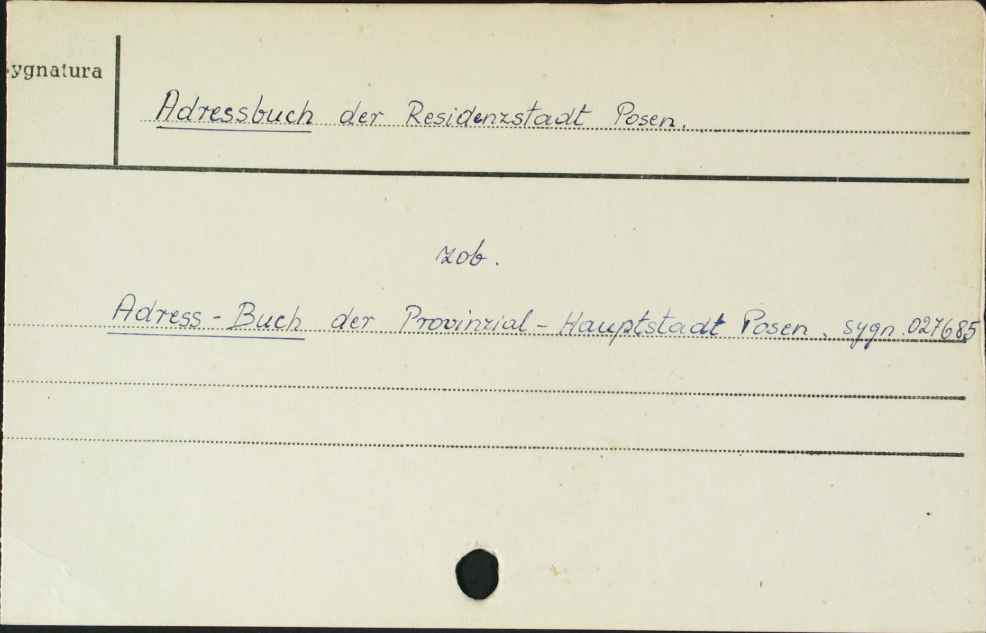 ygnatura
Adressbuch der Residenzstadt Posen.
zob.
Adress-Buch der Provinzial-Hauptstadt Posen. sygn. 027685